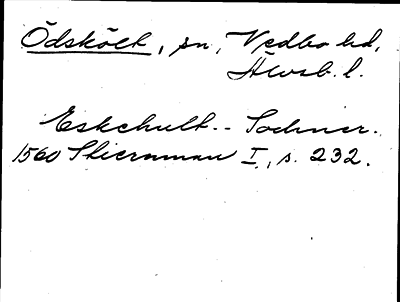 Ödskölt, sn, Vedbo hd,
Älvsb. l.
Eskehult. - Sochner.
1560 Stiernman I, s. 232.